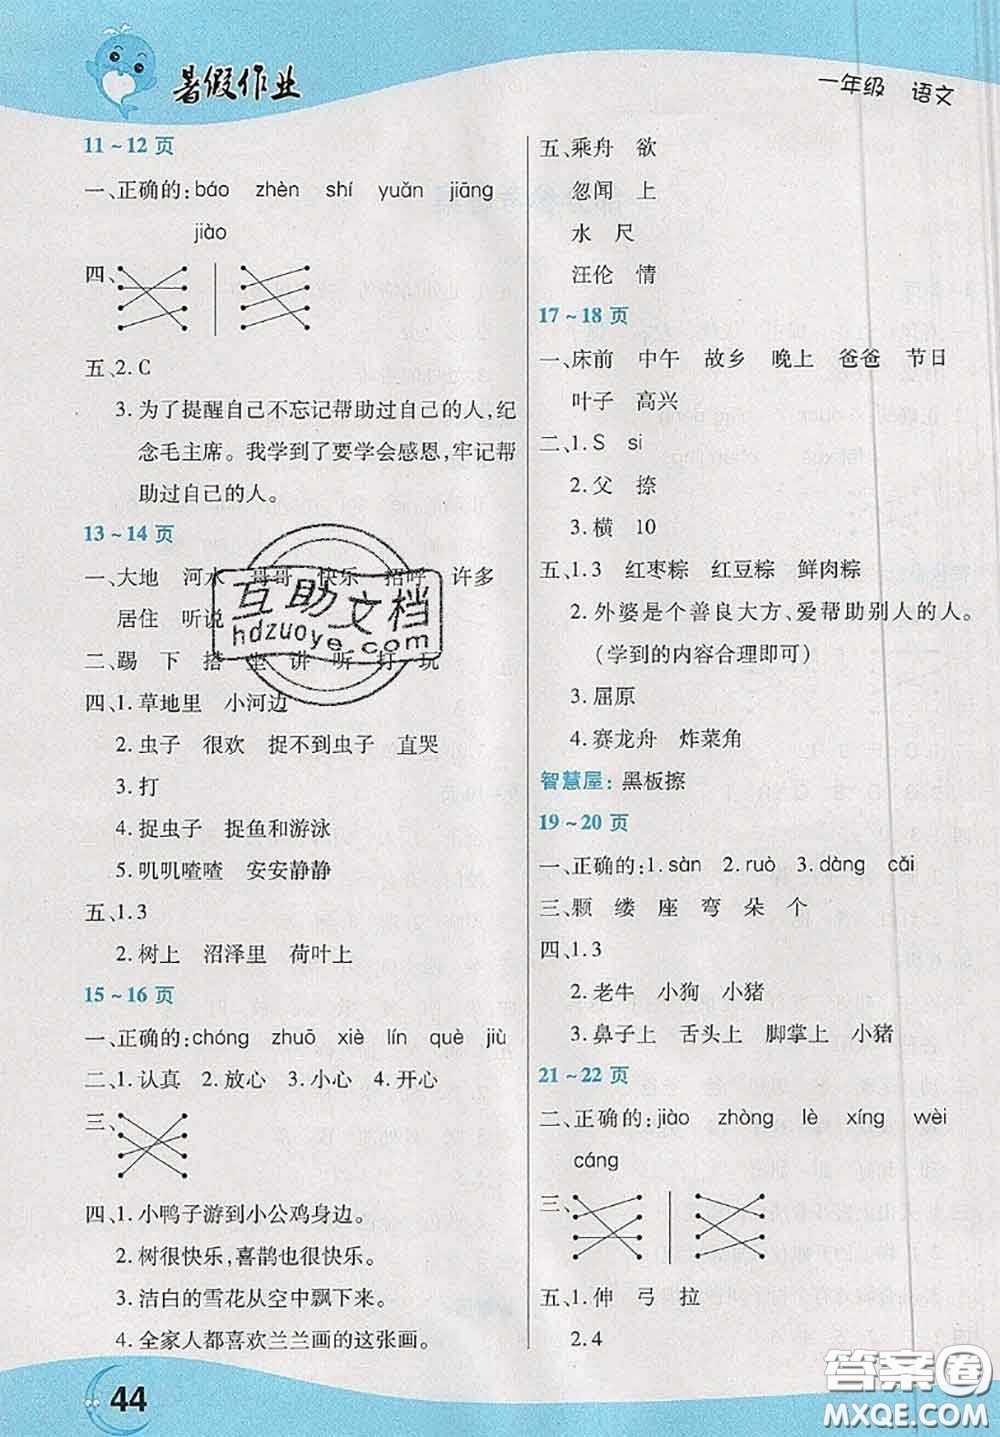 暑假作业
一年级 语文
11~12页
一、正确的:báo zhèn shí yuǎn jiāng
jiào
四、
五、2.C
3.为了提醒自己不忘记帮助过自己的人,纪
念毛主席。我学到了要学会感恩,牢记帮
助过自己的人。
13~14页
一、大地 河水 哥哥 快乐 招呼 许多
居住 听说
二、踢 下 搭 坐 讲 听 打 玩
四、1.草地里 小河边
2.虫子 很欢 捉不到虫子 直哭
3.打
4.捉虫子 捉鱼和游泳
5.叽叽喳喳 安安静静
五、1.3
2.树上 沼泽里 荷叶上
15~16页
一、正确的:chóng zhuō xiè lín què jiù
二、1.认真 2.放心 3.小心 4.开心
三、
四、1.小鸭子游到小公鸡身边。
2.树很快乐,喜鹊也很快乐。
3.洁白的雪花从空中飘下来。
4.全家人都喜欢兰兰画的这张画。
44
五、乘舟 欲
忽闻 上
水 尺
汪伦 情
17~18页
一、床前 中午 故乡 晚上 爸爸 节日
叶子 高兴
二、1.S si
2.父 捺
3.横 10
五、1.3 红枣粽 红豆粽 鲜肉粽
2.外婆是个善良大方、爱帮助别人的人。
(学到的内容合理即可)
3.屈原
4.赛龙舟 炸菜角
智慧屋:黑板擦
19~20页
一、正确的:1.sàn 2.ruò 3.dàng cǎi
三、颗 缕 座 弯 朵 个
四、1.3
2.老牛 小狗 小猪
3.鼻子上 舌头上 脚掌上 小猪
21~22页
二、正确的:jiào zhòng lè xíng wèi
cáng
三、
五、1.伸 弓 拉
2.4
互助文档
hdzuoye.com
答案圈
MXQE.COM